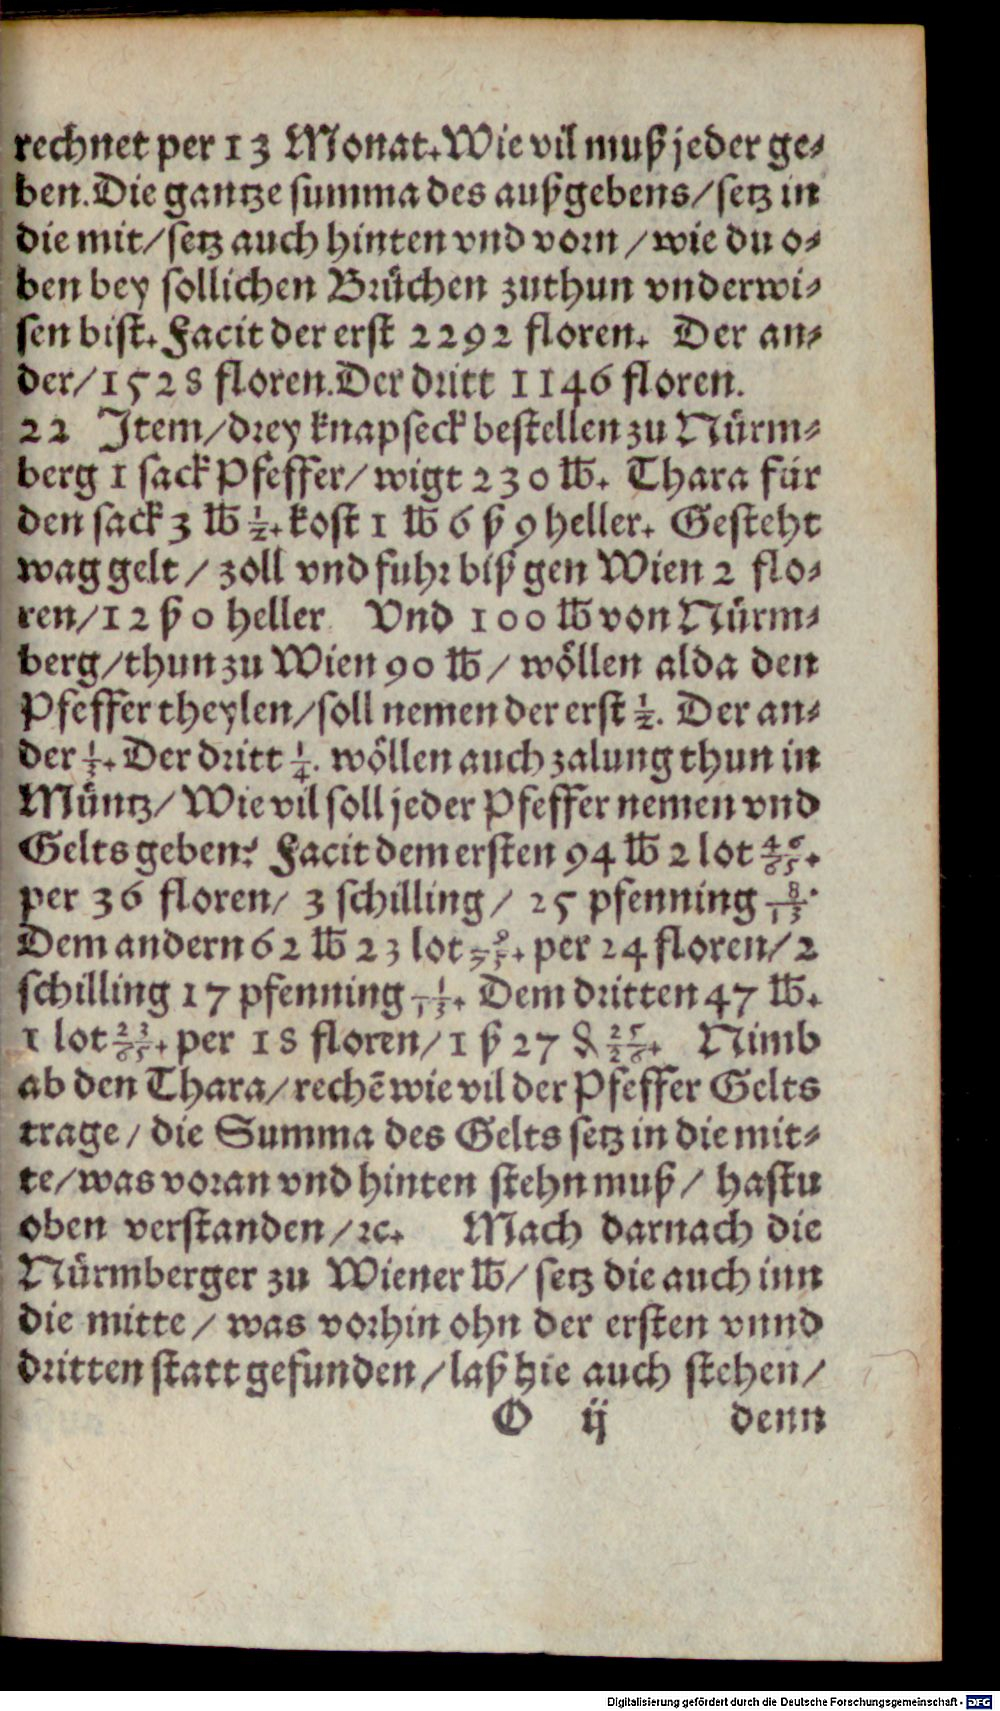 rechnet per 13 Monat. Wie vil muß jeder ge-
ben. Die gantze summa des außgebens/ setz in
die mit/ setz auch hinten vnd vorn / wie du o-
ben bey sollichen Brüchen zuthun vnderwi-
sen bist. Facit der erst 2292 floren. Der an-
der/ 1528 floren. Der dritt 1146 floren.
22 Item/ drey knapseck bestellen zu Nürm-
berg 1 sack Pfeffer/ wigt 230 ℔. Thara für
den sack 3 ℔ 1/2. kost 1 ℔ 6 ß 9 heller. Gesteht
wag gelt / zoll vnd fuhr biß gen Wien 2 flo-
ren/ 12 ß 0 heller Vnd 100 ℔ von Nürm-
berg/ thun zu Wien 90 ℔/ wöllen alda den
Pfeffer theylen/ soll nemen der erst 1/2. Der an-
der 1/3. Der dritt 1/4. wöllen auch zalung thun in
Müntz/ Wie vil soll jeder Pfeffer nemen vnd
Gelts geben? Facit dem ersten 94 ℔ 2 lot 46/65.
per 36 floren/ 3 schilling / 25 pfenning 8/13.
Dem andern 62 ℔ 23 lot per 24 floren/ 2
schilling 17 pfenning 1/13. Dem dritten 47 ℔.
1 lot 23/65. per 18 floren/ 1 ß 27 ₰ 25/26. Nimb
ab den Thara/ rechē wie vil der Pfeffer Gelts
trage / die Summa des Gelts setz in die mit-
te/ was voran vnd hinten stehn muß / hastu
oben verstanden/ ꝛc. Mach darnach die
Nürmberger zu Wiener ℔/ setz die auch inn
die mitte / was vorhin ohn der ersten vnnd
dritten statt gefunden / laß hie auch stehen/
O ij denn
Digitalisierung gefördert durch die Deutsche Forschungsgemeinschaft - DFG